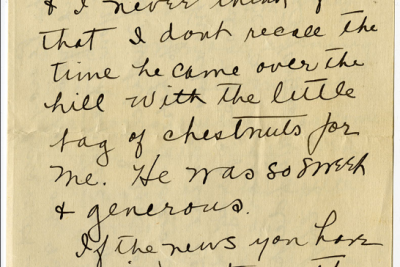 & I never think of
that I dont recall the
time he came over the
hill with the little
bag of chestnuts for
me. He was so sweet
& generous.
If the news you have